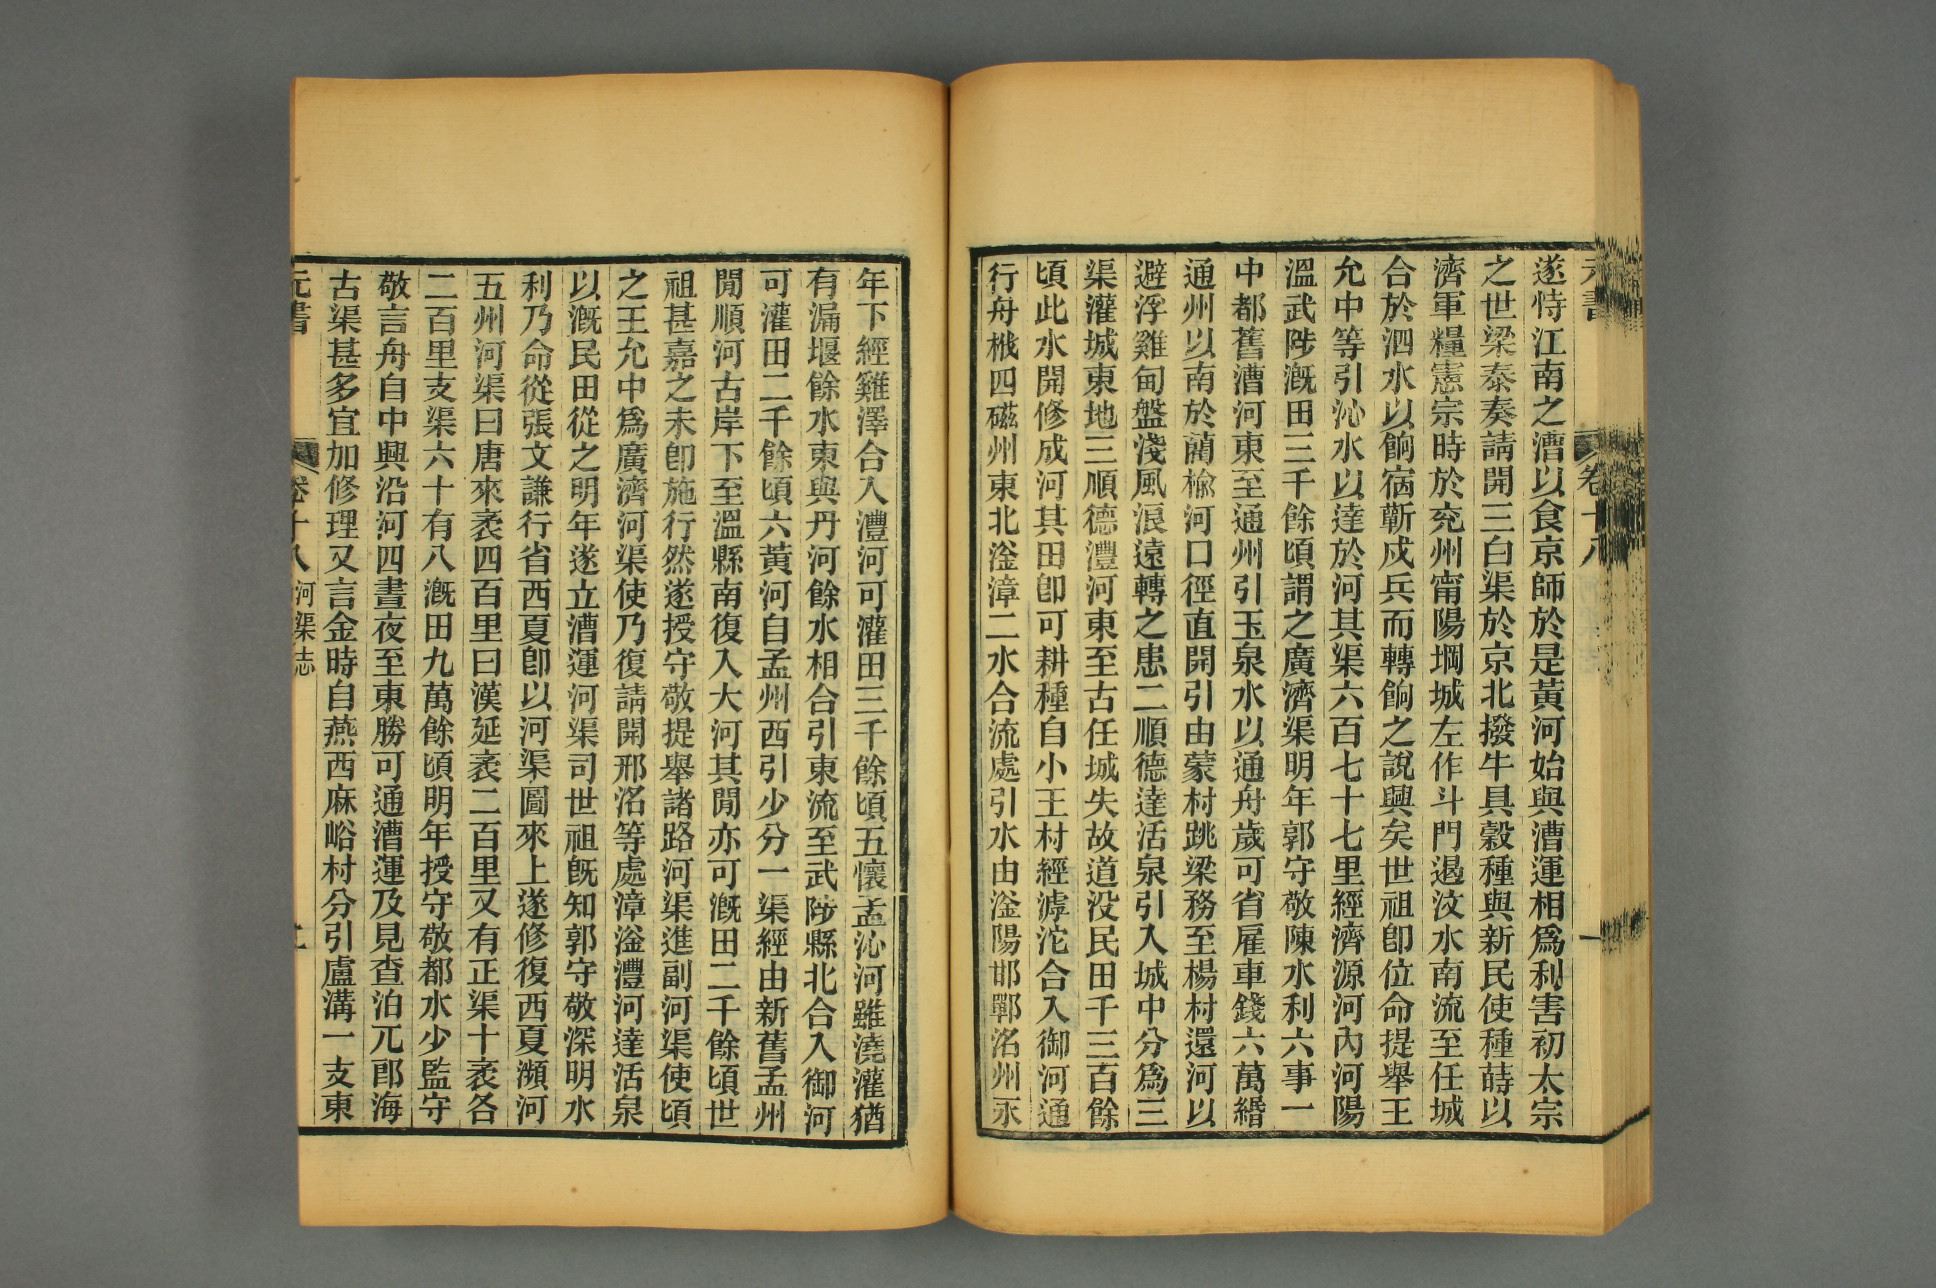 遂恃江南之漕以食京師於是黃河始與漕運相爲利害初太宗
之世梁泰奏請開三白渠於京北撥牛具穀種與新民使種蒔以
濟軍糧憲宗時於兖州甯陽堈城左作斗門遏汶水南流至任城
合於泗水以餉宿蘄戍兵而轉餉之說興矣世祖卽位命提舉王
允中等引沁水以達於河其渠六百七十七里經濟源河內河陽
溫武陟漑田三千餘頃謂之廣濟渠明年郭守敬陳水利六事一
中都舊漕河東至通州引玉泉水以通舟歲可省雇車錢六萬緡
通州以南於藺榆河口徑直開引由蒙村跳梁務至楊村還河以
避浮雞甸盤淺風浪遠轉之患二順德達活泉引入城中分爲三
渠灌城東地三順德澧河東至古任城失故道没民田千三百餘
頃此水開修成河其田卽可耕種自小王村經滹沱合入御河通
行舟栰四磁州東北滏漳二水合流處引水由滏陽邯鄲洺州永
年下經雞澤合入澧河可灌田三千餘頃五懷孟沁河雖澆灌猶
有漏堰餘水東與丹河餘水相合引東流至武陟縣北合入御河
可灌田二千餘頃六黃河自孟州西引少分一渠經由新舊孟州
閒順河古岸下至溫縣南復入大河其閒亦可漑田二千餘頃世
祖甚嘉之未卽施行然遂授守敬提舉諸路河渠進副河渠使頃
之王允中爲廣濟河渠使乃復請開邢洺等處漳滏澧河達活泉
以漑民田從之明年遂立漕運河渠司世祖旣知郭守敬深明水
利乃命從張文謙行省西夏卽以河渠圖來上遂修復西夏瀕河
五州河渠曰唐來袤四百里曰漢延袤二百里又有正渠十袤各
二百里支渠六十有八漑田九萬餘頃明年授守敬都水少監守
敬言舟自中興沿河四晝夜至東勝可通漕運及見查泊兀郎海
古渠甚多宜加修理又言金時自燕西麻峪村分引盧溝一支東
元書
卷十八
河渠志